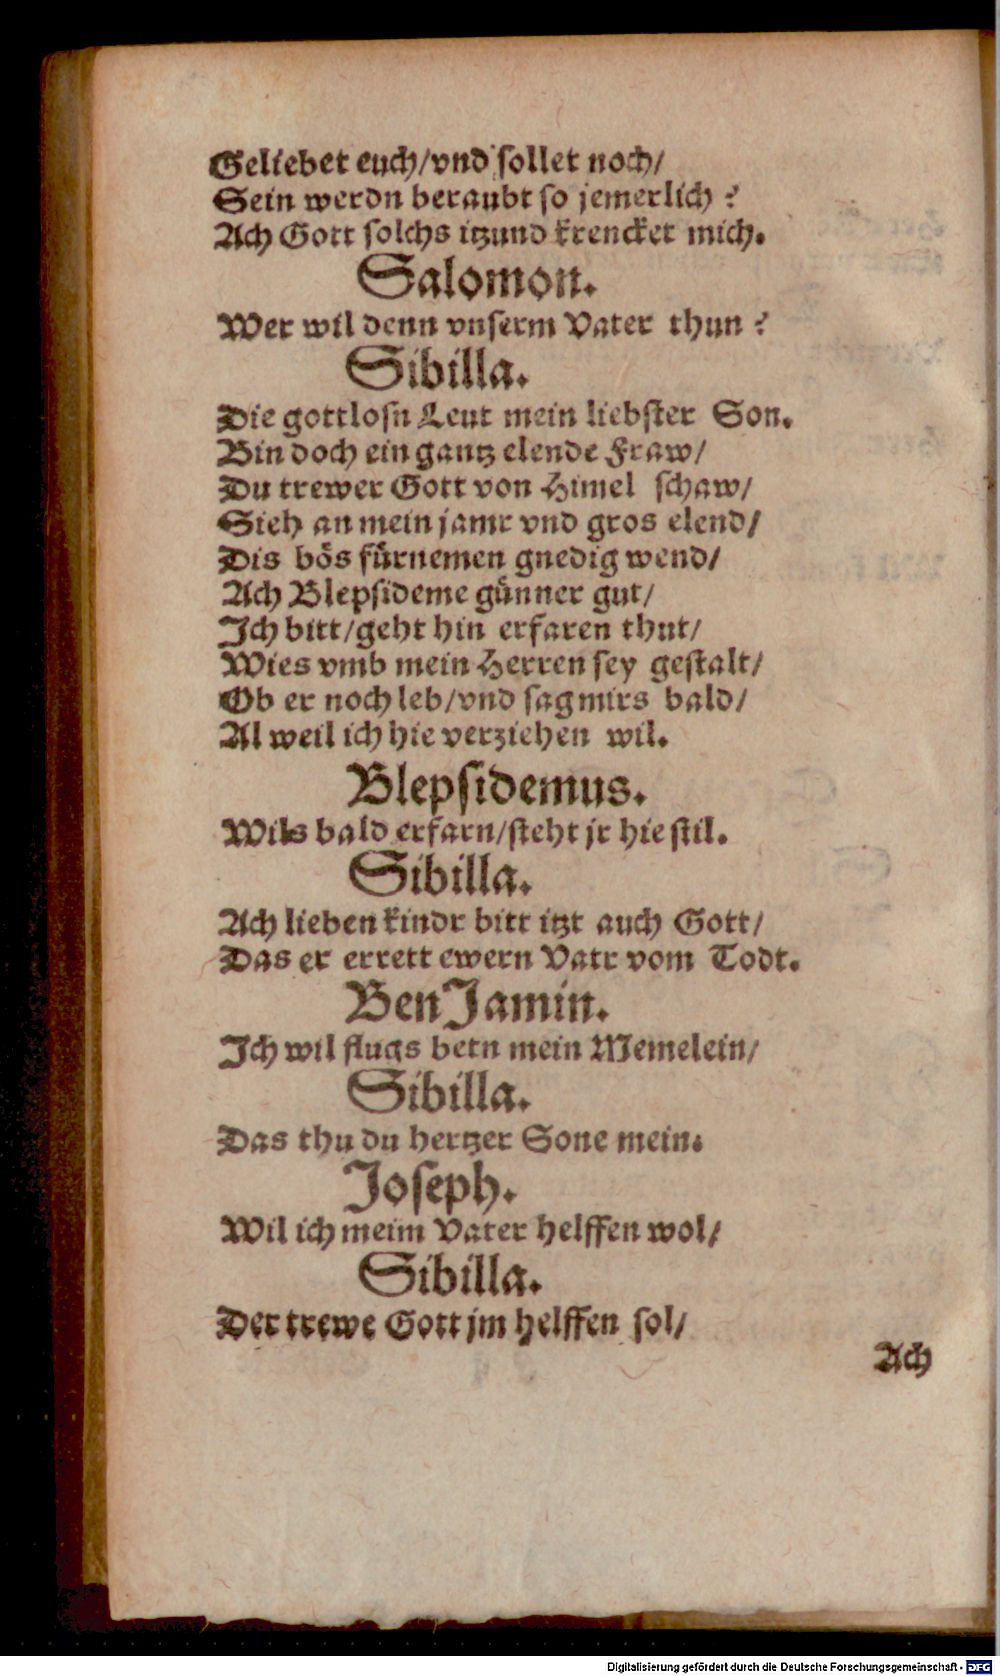 Geliebet euch/vnd sollet noch/
Sein werdn beraubt so jemerlich?
Ach Gott solchs itzund krencket mich.
Salomon.
Wer wil denn vnserm Vater thun?
Sibilla.
Die gottlosn Leut mein liebster Son.
Bin doch ein gantz elende Fraw/
Du trewer Gott von Himel schaw/
Sieh an mein jamr vnd gros elend/
Dis bös fürnemen gnedig wend/
Ach Blepsideme günner gut/
Ich bitt/geht hin erfaren thut/
Wies vmb mein Herren sey gestalt/
Ob er noch leb/vnd sag mirs bald/
Al weil ich hie verziehen wil.
Blepsidemus.
Wils bald erfarn/steht jr hie stil.
Sibilla.
Ach lieben kindr bitt itzt auch Gott/
Das er errett ewern Vatr vom Todt.
BenJamin.
Ich wil flugs betn mein Memelein/
Sibilla.
Das thu du hertzer Sone mein.
Joseph.
Wil ich meim Vater helffen wol/
Sibilla.
Der trewe Gott jm helffen sol/
Ach
Digitalisierung gefördert durch die Deutsche Forschungsgemeinschaft - DFG